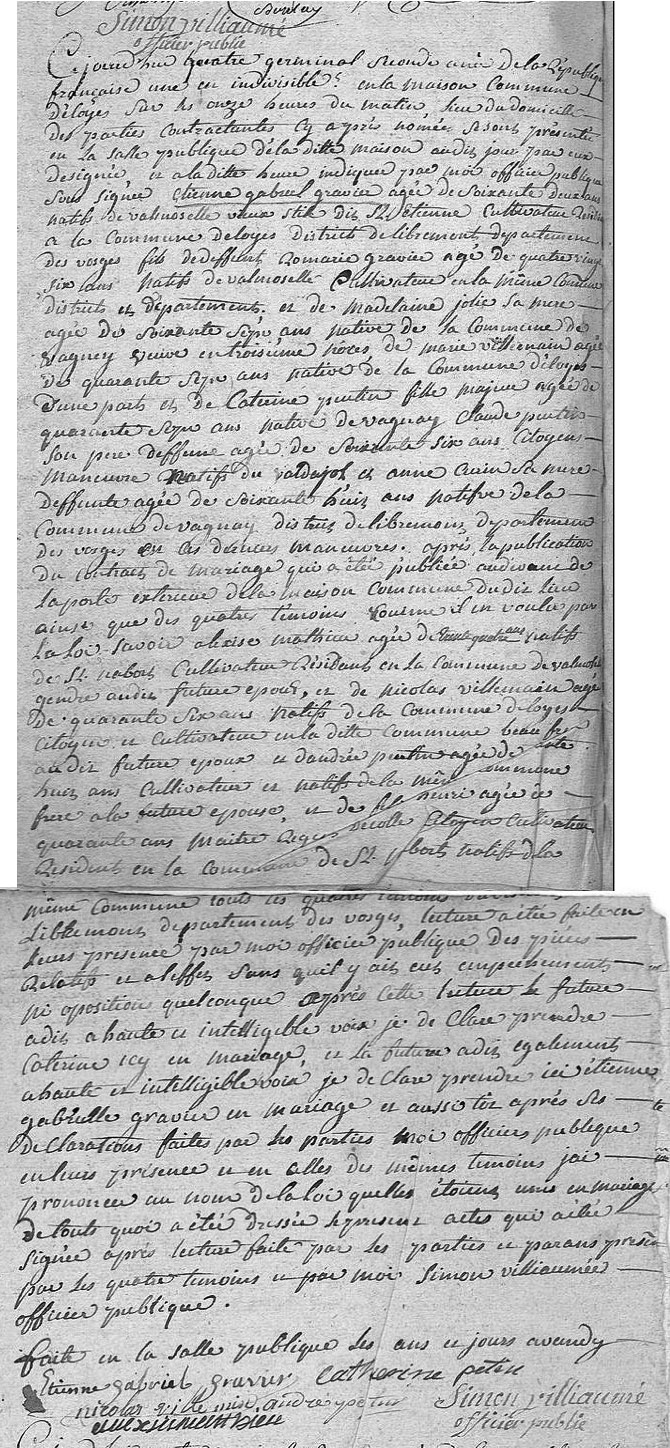 Simon villiaumé
officier public
Cejourd'hue quatre germinal seconde anée de la République
française une en indivisible en la maison Commune
d'éloyes sur les onze heures du matin, lieu du domicille
des parties contractantes Cy après nomées se sont présenté
en la salle publique de la ditte maison audit jour par eux
designée et a la ditte heure indiquer par moi officier publique
sous signée etienne gabriel gravier agée de soixante deux ans
natifs de valmoselle vieux stile dit St. Etienne Cultivateur
a la Commune deloyes districts de libremont departement
des vosges fils de deffunt Romarie gravier agé de quatre vingt
six ans natifs de valmoselle Cultivateur en la même Commune
districts et departement. et de madelaine jolie sa mere
agée de soixante sept ans native de la Commune de
vagney veuve en troisième noces de marie villemain agée
de quarante sept ans native de la Commune d'éloyes
d'une part et de Caterine fille majeur agée de
quarante sept ans native de vagnay Claude
son pere deffunt agée de soixante six ans Citoyens
manuvre natifs du valdajol et anne Cuin sa mere
deffunte agée de soixante huit ans natifve de la
Commune de vagnay districts de libremont departement
des vosges en les derniers manuvres. après la publication
du contract de mariage qui a été publiée audevant de
la porte exterieur de la maison commune dudit lieu
ainse que des quatres temoins comme il en voulu par
la loi savoir alexise mathieu agée de trente quatre ans natifs
de St. nabort Cultivateur Résidant en la Commune de
gendre audit future epoux, et de nicolas villemain agée
de quarante six ans natifs de la Commune deloyes
Citoyen et Cultivateur en la ditte Commune beau frere
audit future epoux et d'andrée agée de
huit ans Cultivateur et natifs de la même Commune
frere a la future epouse, et de henri agée de
quarante ans maitre Citoyen Cultivateur
Résident en la Commune de St. nabort natifs de la
même Commune touts les quatres temoins
Liblemont departement des vosges, lecture a étée faite en
leurs presence par moi officier publique des pièces
Relatifs et aleffet sans quil y ait eut empechements
ni oposition quelconque après Cette lecture le future
a dit a haute et intelligible voix je de Clare prendre
Caterine icy en mariage, et la future a dit egalement
a haute et intelligible voix je de Clare prendre ici étienne
gabrielle gravier en mariage et aussi tôt après ses
de Clarations faites par les parties moi officier publique
en leurs présence et en celles des mêmes temoins jai
prononcer au nom de la loi quelles étoient unis en mariage
de touts quoi a été dressée le present actes qui a étée
signée après lecture faite par les parties et parans présent
par les quatre temoins et par moi Simon villiaumée
officier publique.
faite en la salle publique les ans et jours avandy
Etienne gabriel gravier catherine petin
nicolas ville min andre petin Simon villiaumé
alexismathieu officier public